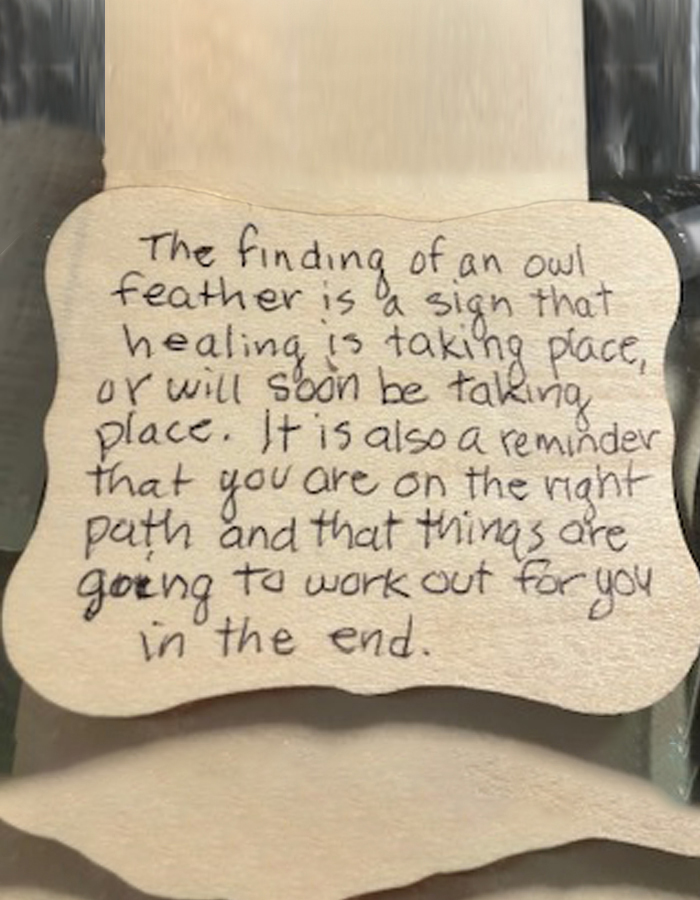 The finding of an owl
feather is a sign that
healing is taking place,
or will soon be taking
place. It is also a reminder
that you are on the right
path and that things are
going to work out for you
in the end.